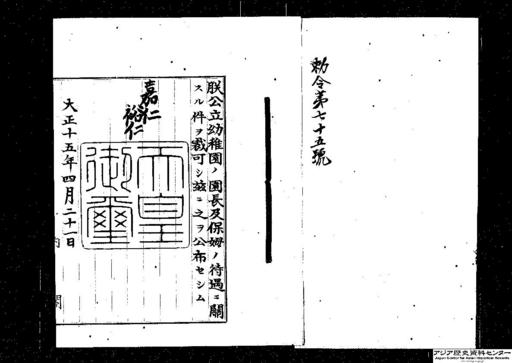 勅令第七十五號
朕公立幼稚園ノ園長及保姆ノ待遇ニ關
スル件ヲ裁可シ茲ニ之ヲ公布セシム
嘉仁
裕仁
天皇
御璽
大正十五年四月二十一日
内
閣
アジア歴史資料センター
Japan Center for Asian Historical Records